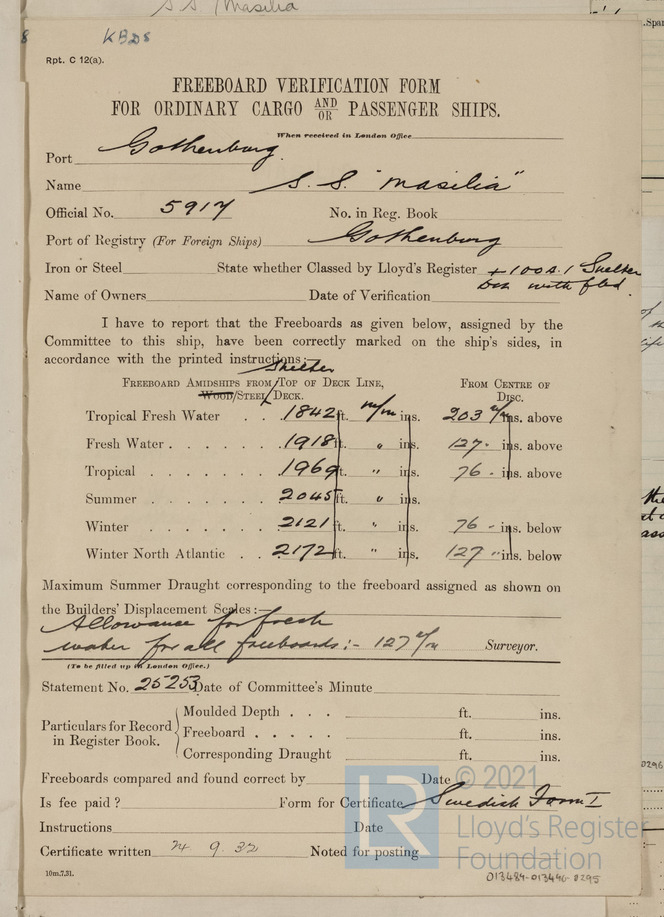 S S Masilia
KBDS
Rpt. C 12(a).
FREEBOARD VERIFICATION FORM
FOR ORDINARY CARGO AND/OR PASSENGER SHIPS.
When received in London Office
Port Gothenburg.
Name S. S. "Masilia"
Official No. 5917 No. in Reg. Book
Port of Registry (For Foreign Ships) Gothenburg
Iron or Steel State whether Classed by Lloyd's Register +100A.1 Shelter
Name of Owners Date of Verification Dk with fbd.
I have to report that the Freeboards as given below, assigned by the
Committee to this ship, have been correctly marked on the ship's sides, in
accordance with the printed instructions:—
Shelter
FREEBOARD AMIDSHIPS FROM TOP OF DECK LINE, FROM CENTRE OF
WOOD/STEEL DECK. DISC.
Tropical Fresh Water . . 1842 ft. m/m ins. 203 m/m ins. above
Fresh Water . . . . . . 1918 ft. " ins. 127 - ins. above
Tropical . . . . . . . 1969 ft. " ins. 76 - ins. above
Summer . . . . . . . 2045 ft. " ins.
Winter . . . . . . . 2121 ft. " ins. 76 - ins. below
Winter North Atlantic . . 2172 ft. " ins. 127 " ins. below
Maximum Summer Draught corresponding to the freeboard assigned as shown on
the Builders' Displacement Scales:—
Allowance for fresh
water for all freeboards:- 127 m/m Surveyor.
(To be filled up in London Office.)
Statement No. 25253 Date of Committee's Minute
Particulars for Record in Register Book.
Moulded Depth . . . ft. ins.
Freeboard . . . . . ft. ins.
Corresponding Draught ft. ins.
Freeboards compared and found correct by Date
Is fee paid? Form for Certificate Swedish Form I
Instructions Date
Certificate written 24. 9. 32 Noted for posting
10m.7,31.
© 2021
LR
Lloyd's Register
Foundation
013484-013496-0295